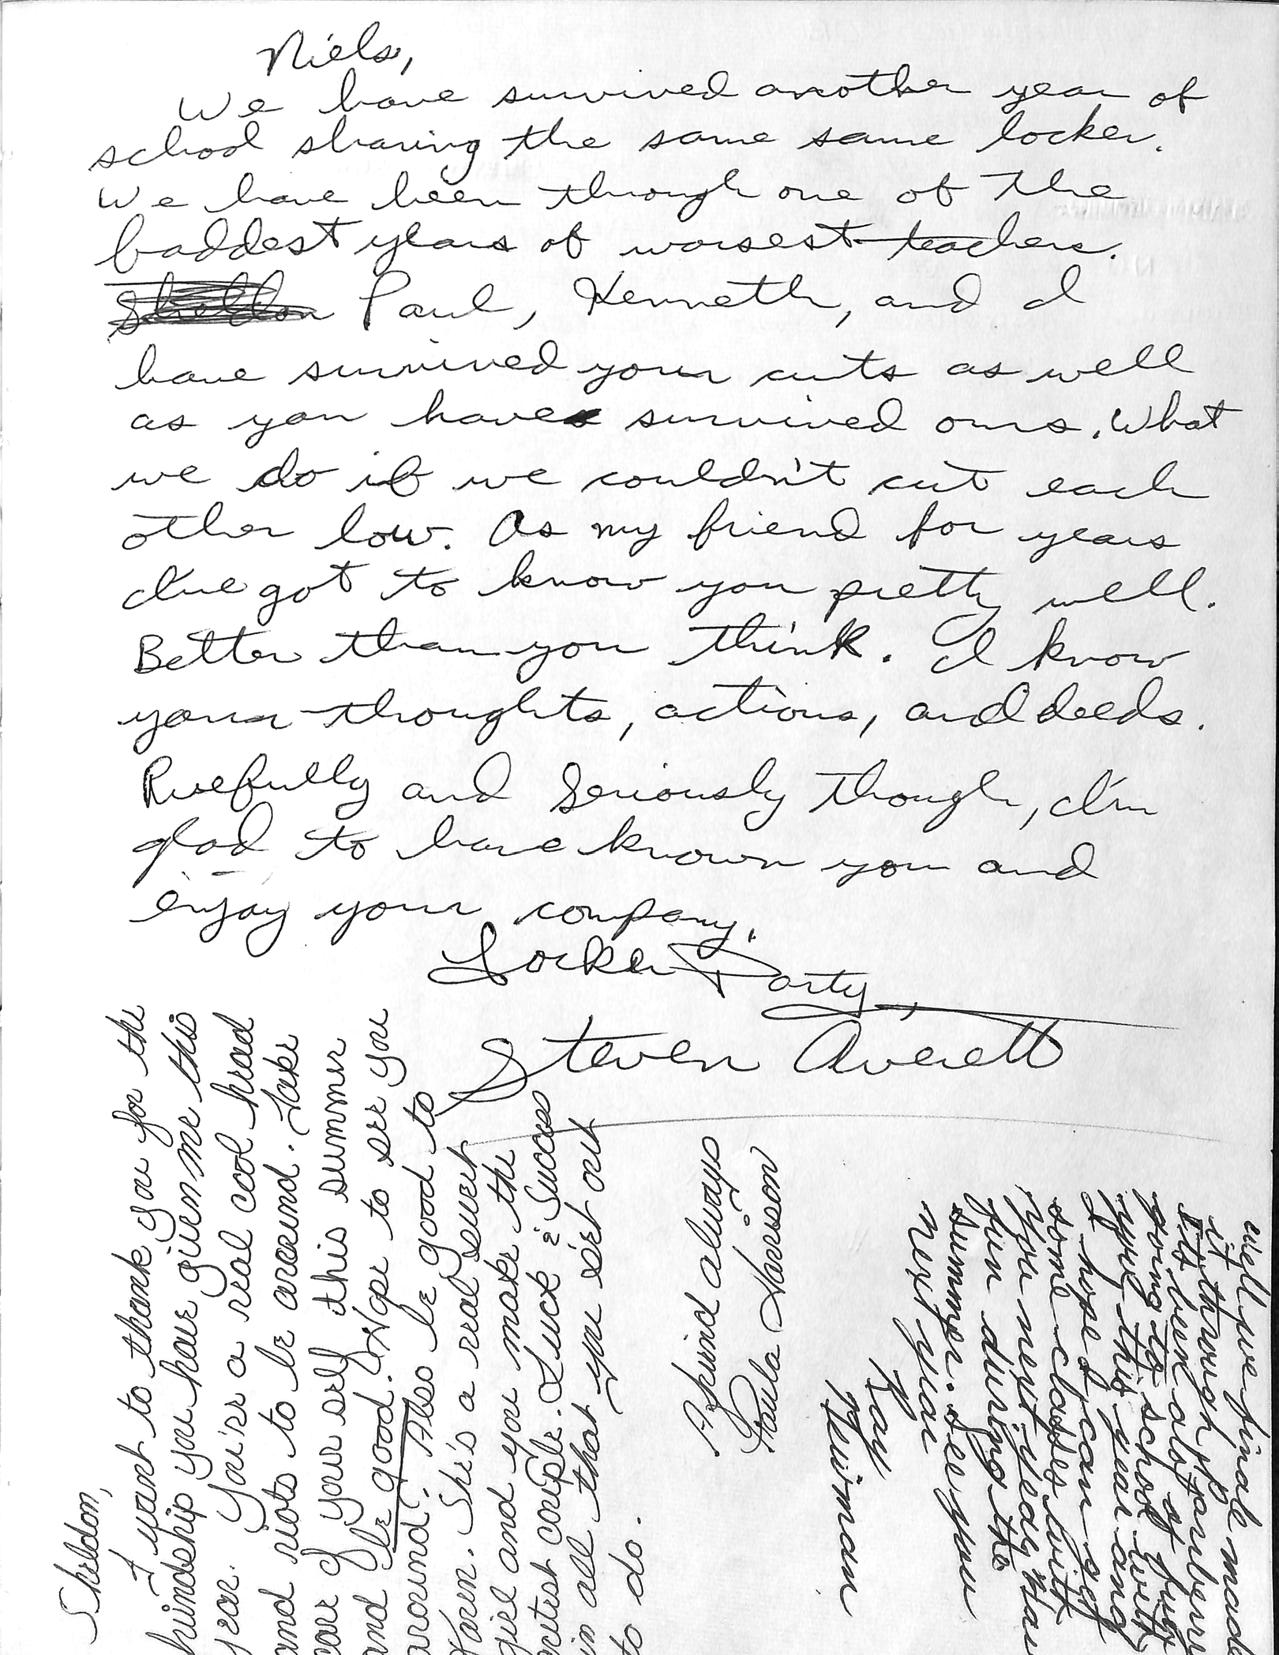 Niels,
We have survived another year of
school sharing the same same locker.
We have been through one of the
baddest years of worsest teachers.
Sheldon Paul, Kenneth, and I
have survived your cuts as well
as you have survived ours. What
we do if we couldn't cut each
other low. As my friend for years
I've got to know you pretty well.
Better than you think. I know
your thoughts, actions, and deeds.
Ruefully and Seriously though, I'm
glad to have known you and
enjoy your company.
Locker Party,
Steven Averett
Sheldon,
I want to thank you for the
friendship you have given me this
year. You're a real cool head
and nots to be around. Take
care of your self this summer
and be good. Hope to see you
around. Also be good to
Karen. She's a real sweet
girl and you make the
cutest couple. Luck & Success
in all that you set out
to do.
A friend always
Paula Harrison
well we finale made
it through
its been alot of fun
going to school with
you this year and
I hope I can get
some classes with
you next year. Hav
fun during the
summer. See you
next year
Ray
Newman